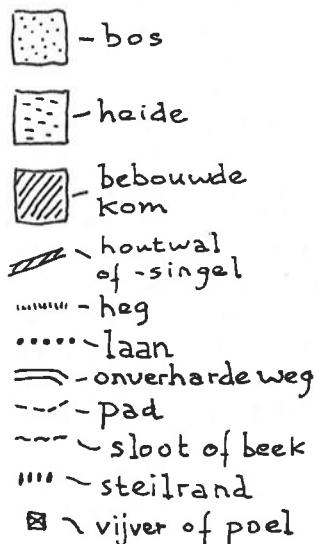 bos
heide
bebouwde
kom
houtwal
of -singel
heg
laan
onverharde weg
pad
sloot of beek
steilrand
vijver of poel